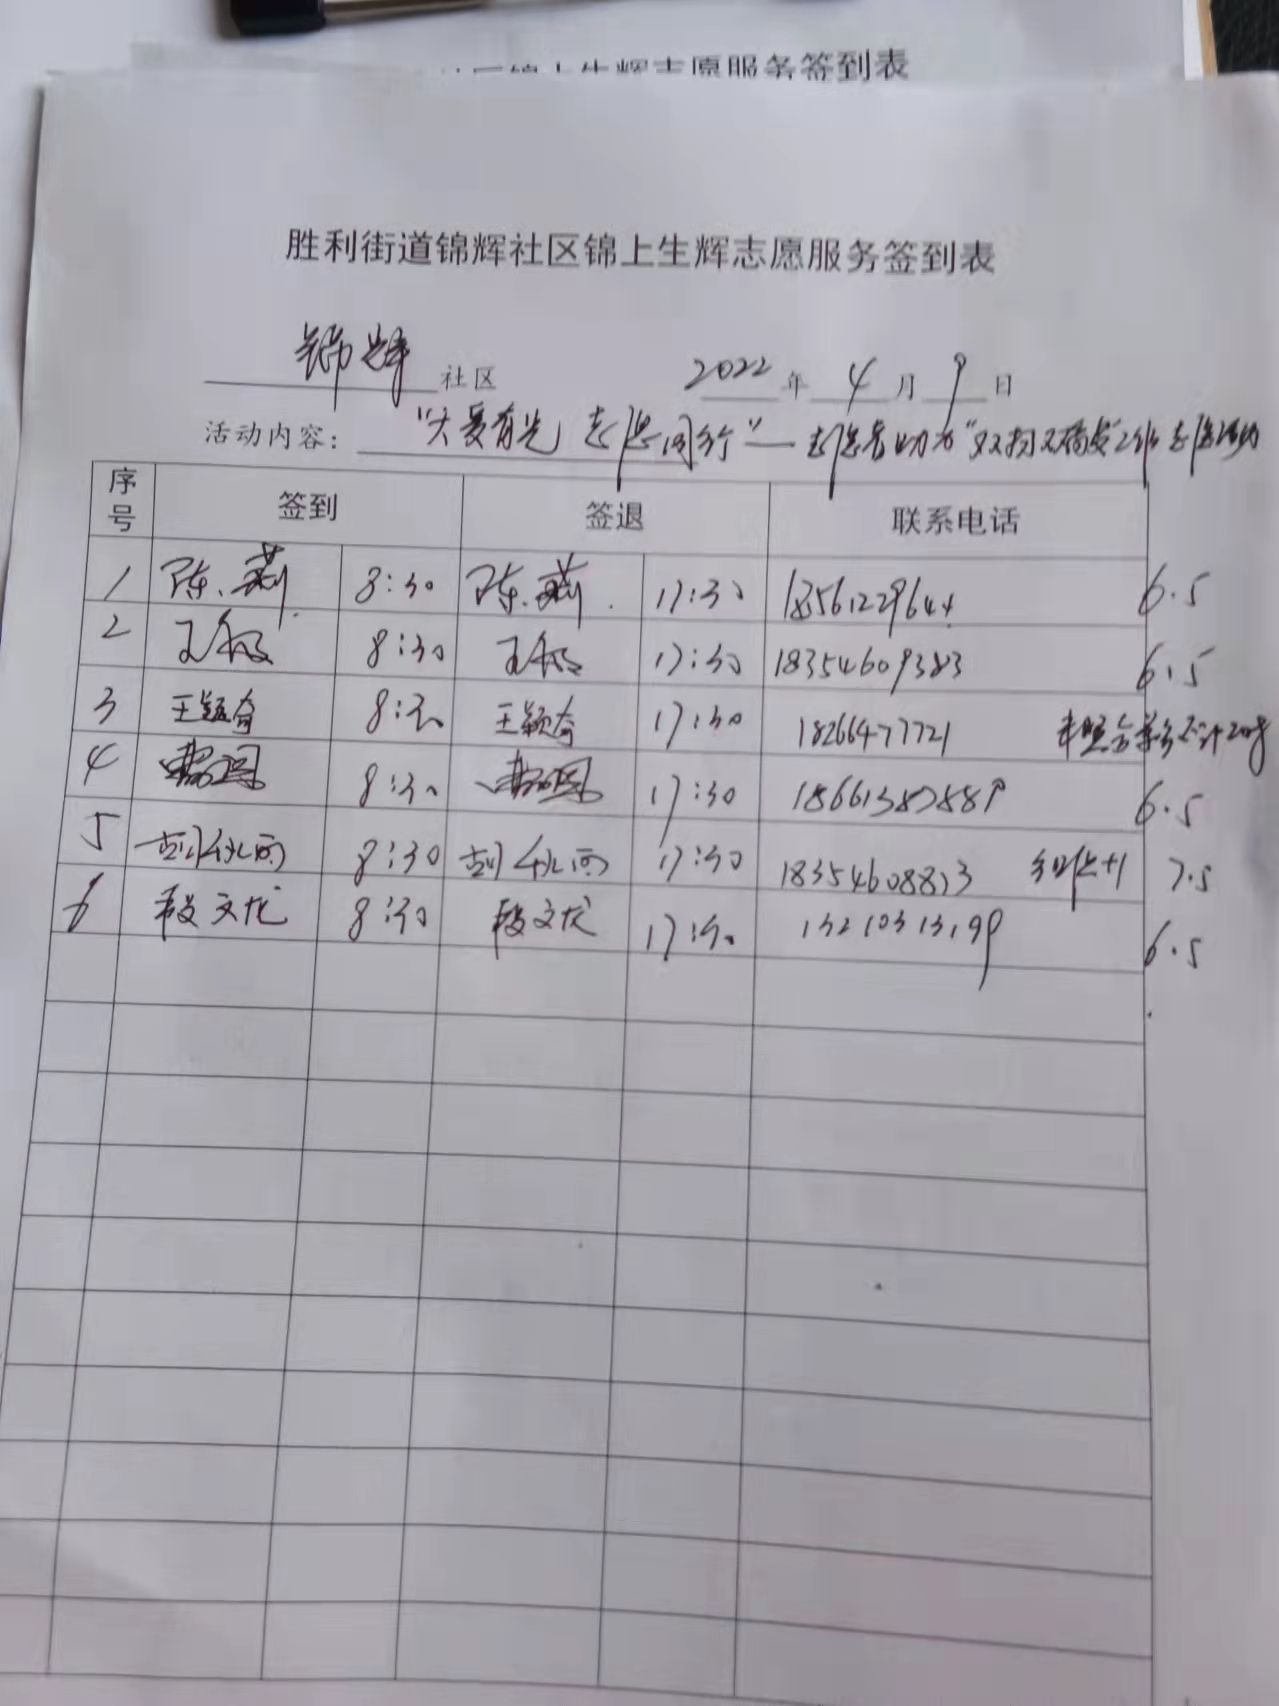 志愿服务签到表
胜利街道锦辉社区锦上生辉志愿服务签到表
锦辉社区 2022年4月9日
活动内容："大爱有光 志愿同行"— 志愿者助力"双招双
序号 签到 签退 联系电话
1 陈莉 8:30 陈莉 17:30 18561229644 6.5
2 8:30 17:30 18354609383 6.5
3 王颖奇 8:30 王颖奇 17:30 18266477721
4 8:30 17:30 6.5
5 8:30 17:30 18354608873 +1 7.5
6 段文龙 8:30 段文龙 17:30 13210313199 6.5